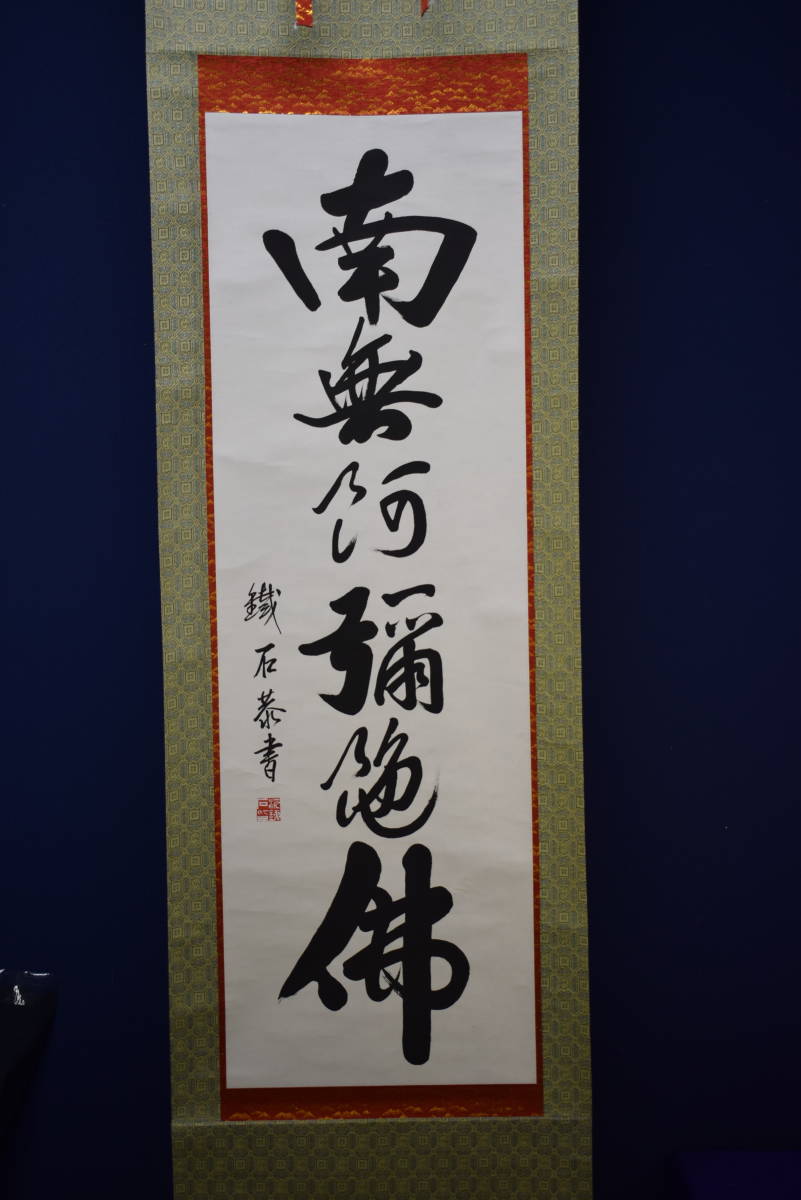 南無阿彌陀佛
鐵石恭書